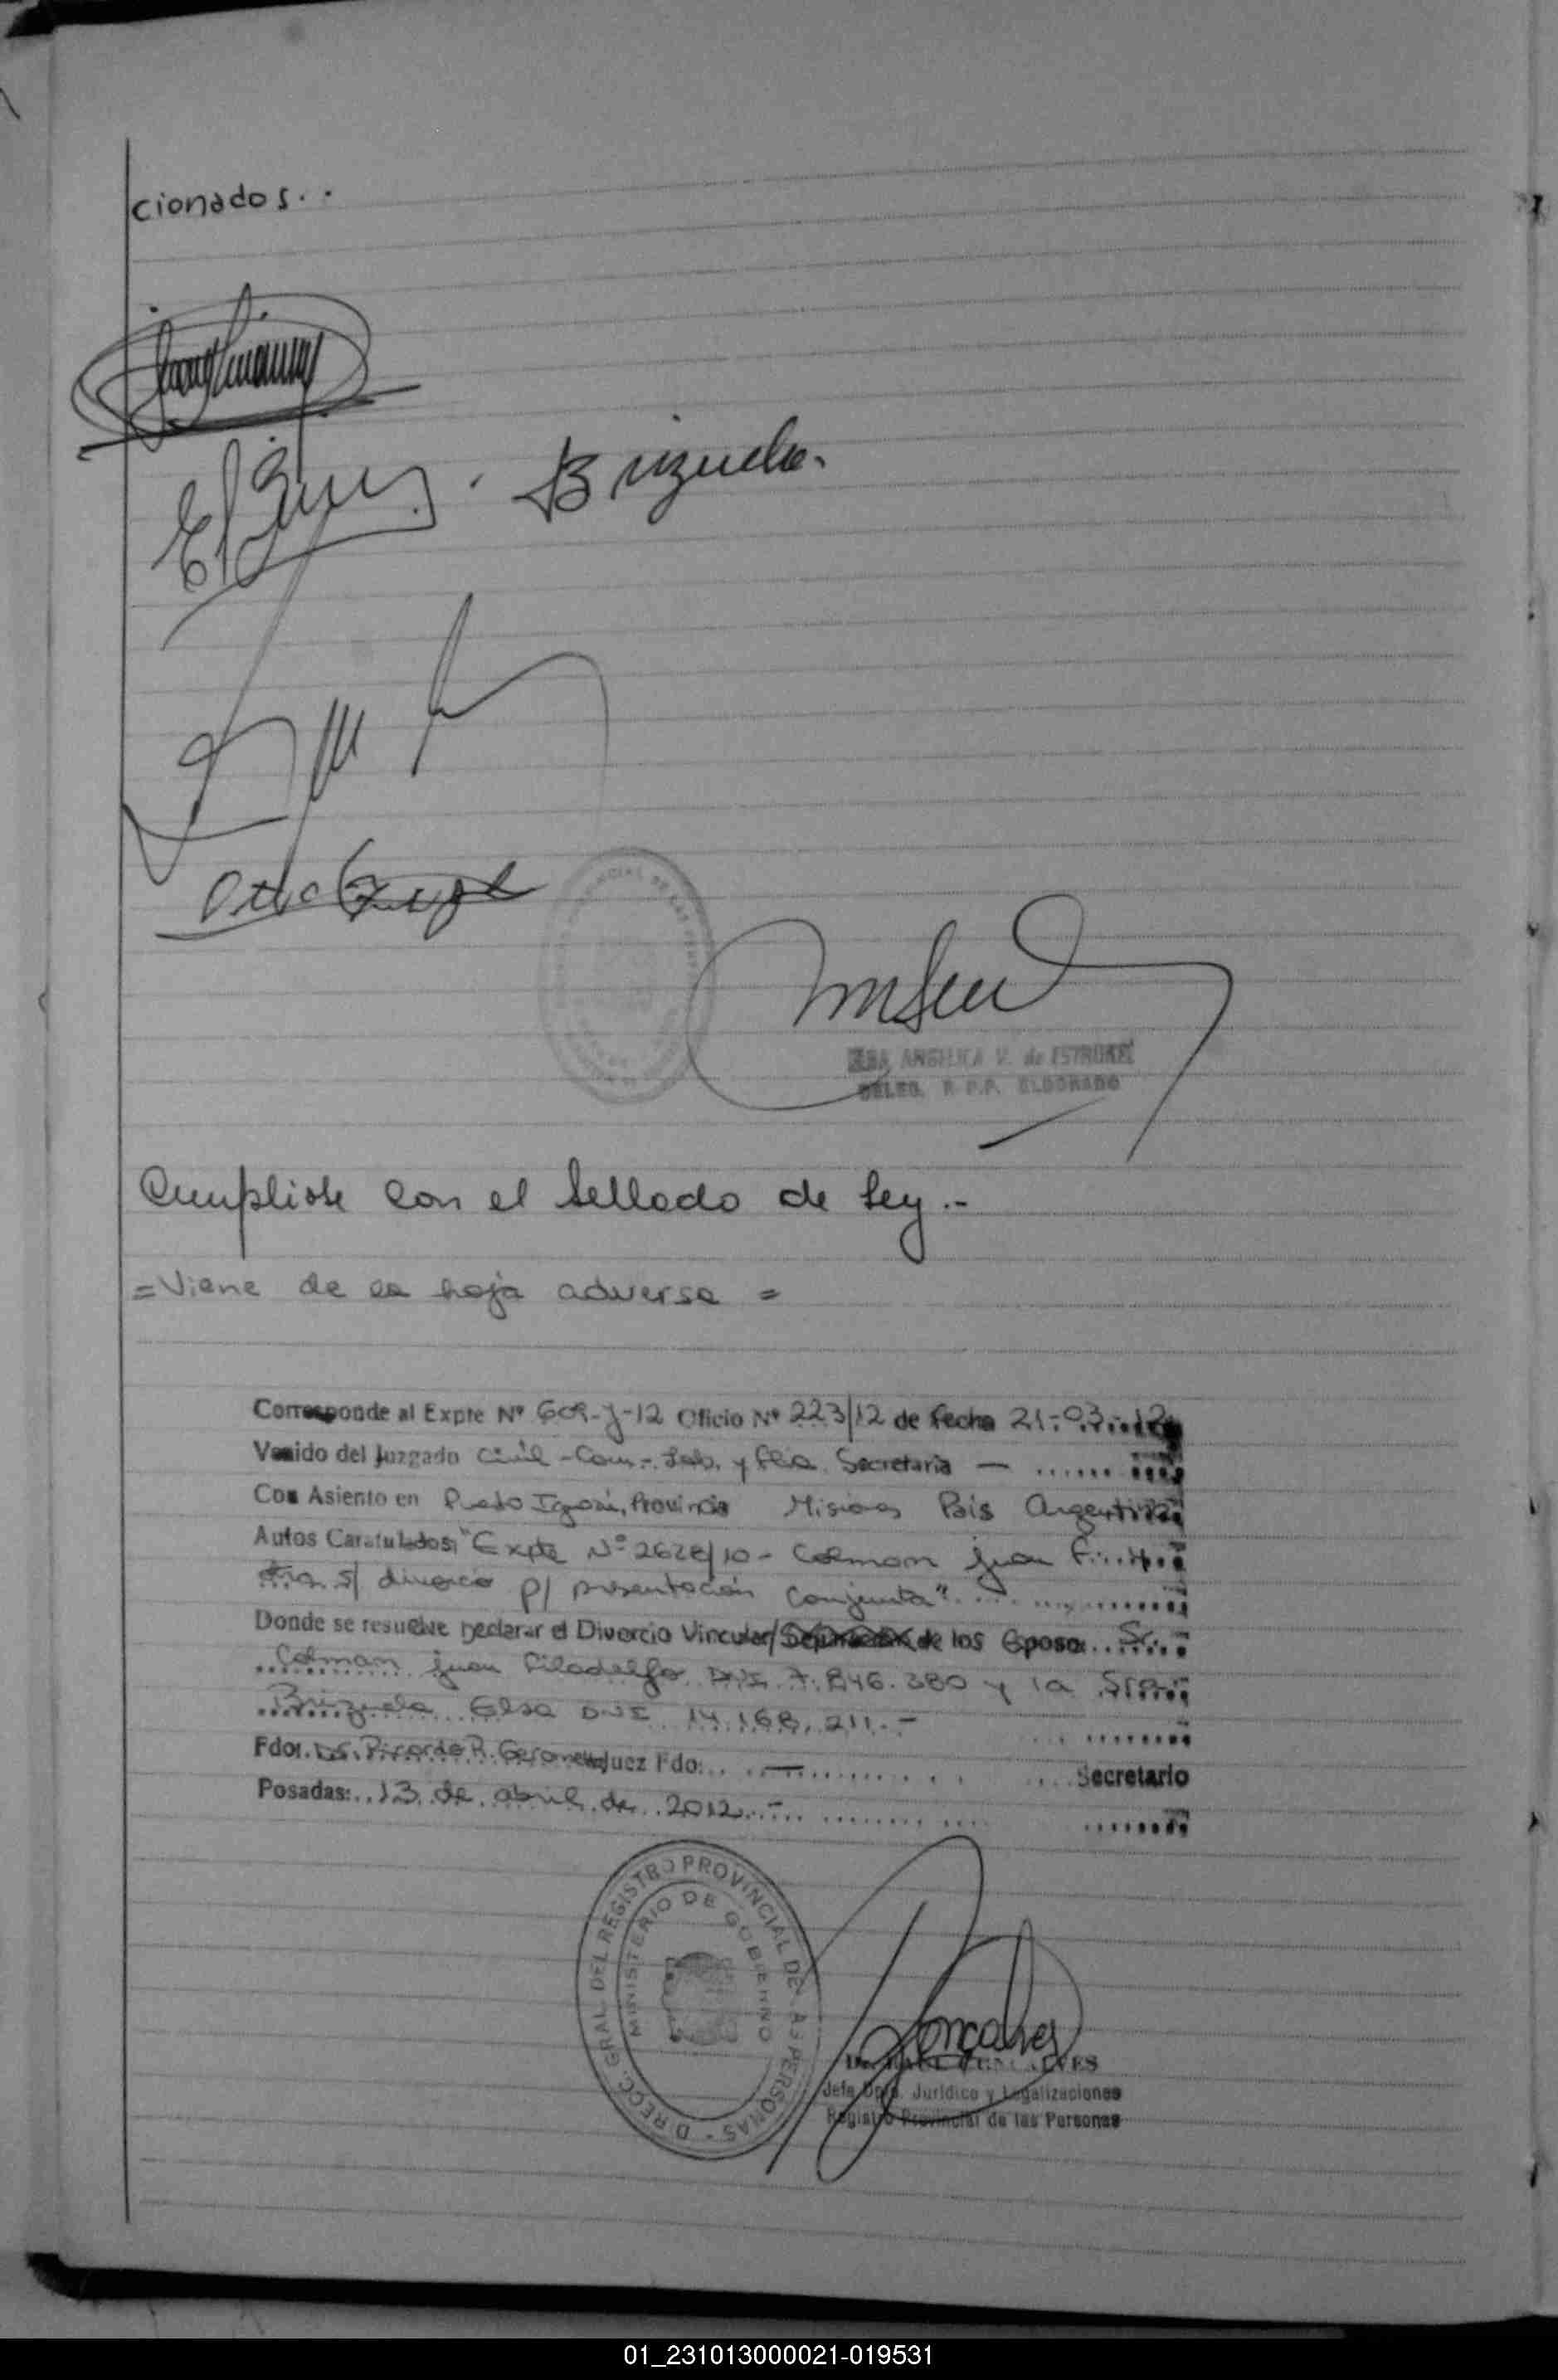 cionados..
Brizuela.
ANGELICA V. de ISTROKEL
DELEG. R.P.P. ELDORADO
Cumpliose con el Sellado de Ley.-
=Viene de la hoja adversa =
Corresponde al Expte Nº 609-J-12 Oficio Nº 223/12 de fecha 21-03-12
Venido del Juzgado Civil-Com.-Lab. y Flia. Secretaria —
Con Asiento en Puerto Iguazú, Provincia Misiones Pais Argentina
Autos Caratulados: "Expte Nº 2628/10 - Colman Juan F.
otra s/ divorcio p/ presentación conjunta".
Donde se resuelve Declarar el Divorcio Vincular/Separación de los Esposo Sr.
Colman Juan Filadelfo DNI 7.846.380 y la Sra.
Brizuela Elsa DNI 14.168.211.-
Fdo: Dr. Ricardo R. Juez Fdo: — Secretario
Posadas: 13 de abril de 2012.-
DIRECC. GRAL. DEL REGISTRO PROVINCIAL DE LAS PERSONAS -
MINISTERIO DE GOBIERNO
Goncalves
GONCALVES
Jefe Dpto. Jurídico y Legalizaciones
Registro Provincial de las Personas
01_231013000021-019531